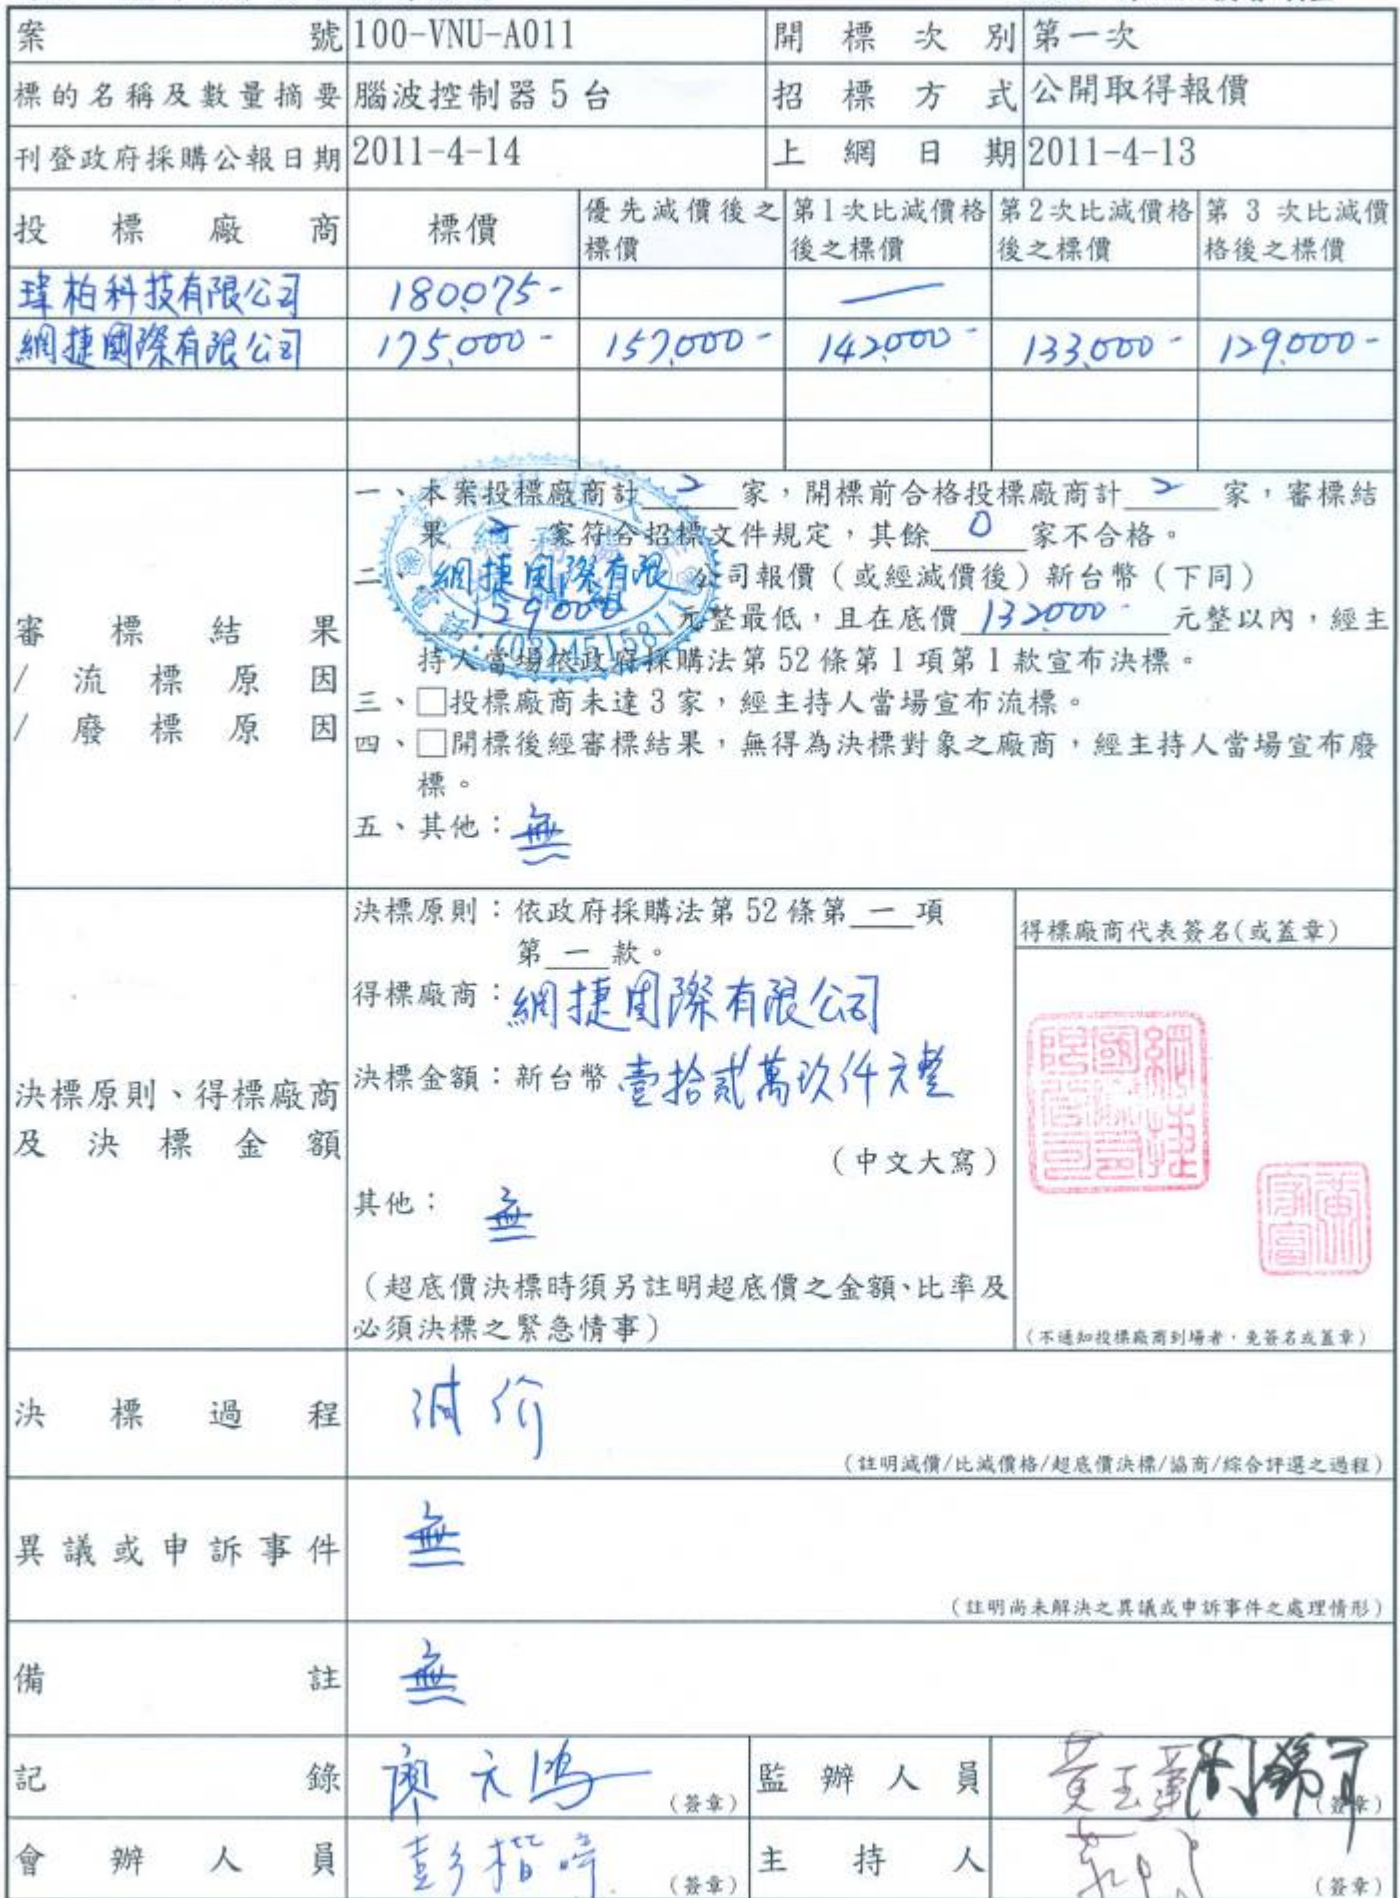 案號 100-VNU-A011 開標次別 第一次
標的名稱及數量摘要 腦波控制器5台 招標方式 公開取得報價
刊登政府採購公報日期 2011-4-14 上網日期 2011-4-13
投標廠商 標價 優先減價後之標價 第1次比減價格後之標價 第2次比減價格後之標價 第3次比減價格後之標價
瑋柏科技有限公司 180,075- —
網捷國際有限公司 175,000- 157,000- 142,000- 133,000- 129,000-
審標結果
/流標原因
/廢標原因
一、本案投標廠商計 2 家,開標前合格投標廠商計 2 家,審標結
果 2 家符合招標文件規定,其餘 0 家不合格。
二、網捷國際有限公司報價(或經減價後)新台幣(下同)
129,000 元整最低,且在底價 132,000- 元整以內,經主
持人當場依政府採購法第52條第1項第1款宣布決標。
三、□投標廠商未達3家,經主持人當場宣布流標。
四、□開標後經審標結果,無得為決標對象之廠商,經主持人當場宣布廢
標。
五、其他:無
決標原則、得標廠商
及決標金額
決標原則:依政府採購法第52條第 一 項
第 一 款。
得標廠商:網捷国際有限公司
決標金額:新台幣 壹拾貳萬玖仟元整
(中文大寫)
其他: 無
(超底價決標時須另註明超底價之金額、比率及
必須決標之緊急情事)
得標廠商代表簽名(或蓋章)
網捷
國際有
限公司
(不通知投標廠商到場者,免簽名或蓋章)
決標過程 減价
(註明減價/比減價格/超底價決標/協商/綜合評選之過程)
異議或申訴事件 無
(註明尚未解決之異議或申訴事件之處理情形)
備註 無
記錄 廖元鴻 (簽章) 監辦人員 (簽章)
會辦人員 (簽章) 主持人 (簽章)